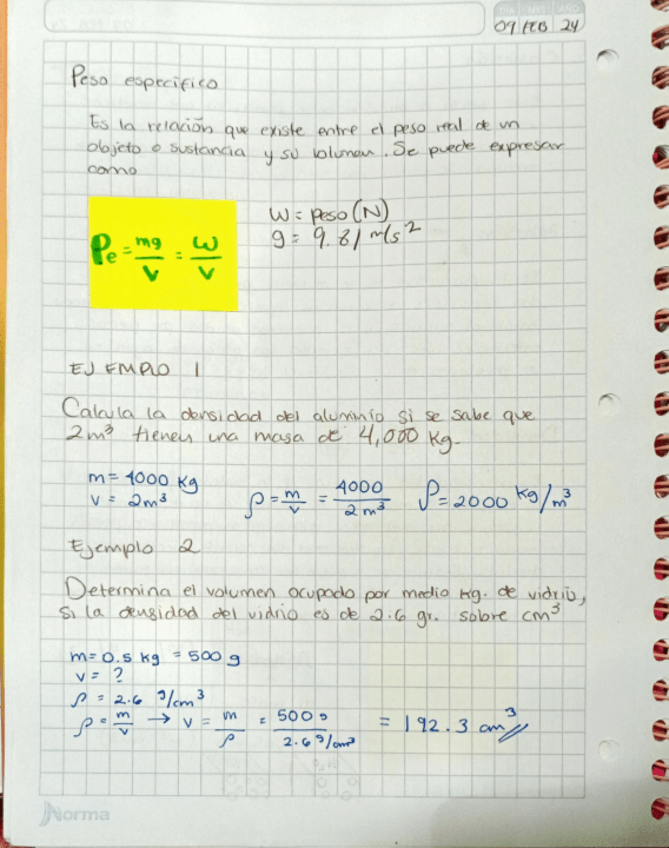 DIA MES AÑO
09 FEB 24
Peso especifico
Es la relación que existe entre el peso real de un
objeto o sustancia y su volumen. Se puede expresar
como
Pe = mg/v = w/v
W = peso (N)
g = 9.81 m/s²
EJEMPLO 1
Calcula la densidad del aluminio si se sabe que
2m³ tienen una masa de 4,000 Kg.
m = 4000 Kg
v = 2m³
ρ = m/v = 4000/2m³ ρ = 2000 kg/m³
Ejemplo 2
Determina el volumen ocupado por medio kg. de vidrio,
si la densidad del vidrio es de 2.6 gr. sobre cm³
m = 0.5 kg = 500 g
v = ?
ρ = 2.6 g/cm³
ρ = m/v → v = m/ρ = 500g/2.6 g/cm³ = 192.3 cm³
Norma